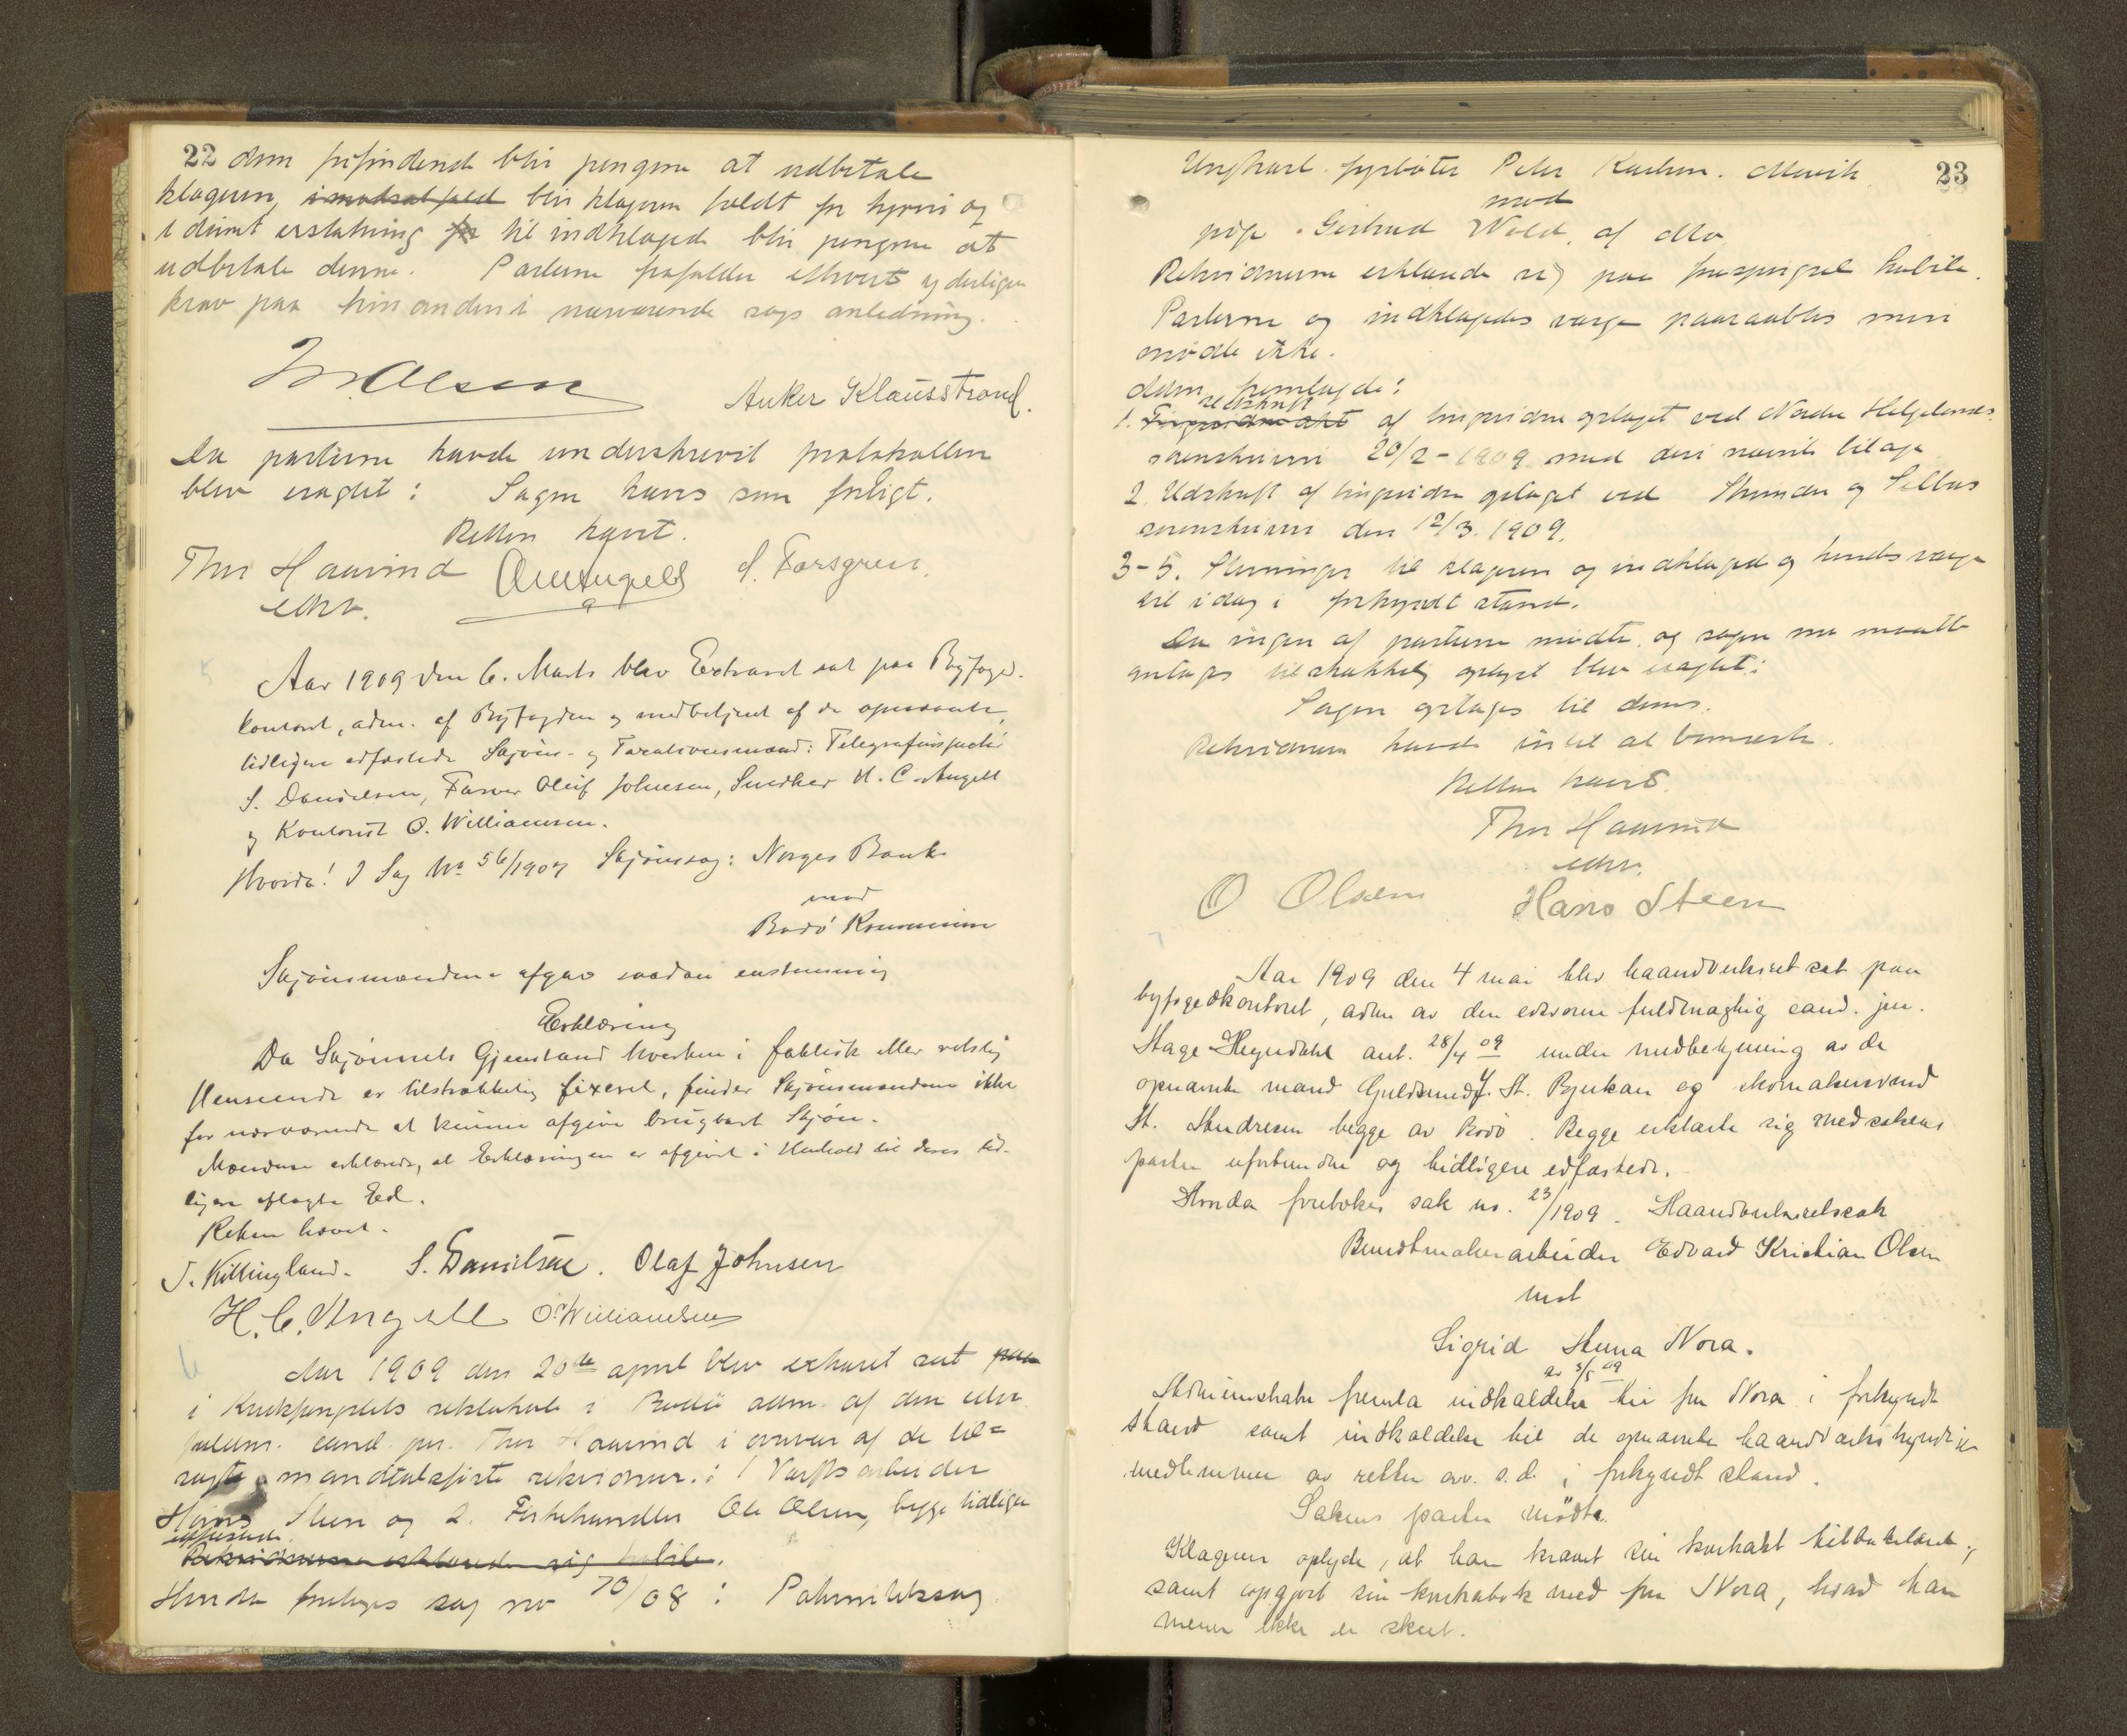 22
dem pengene at udbetale
klageren, imodsat fald blir klageren fældt for hyren og
idømt erstatning for til indklagede blir pengene at
udbetale denne. Parterne frafalder ethvert yderligere
krav paa hinanden i nærværende sags anledning.
Olsen
Anker Klausstrand.
Da parterne havde underskrevet protokollen
blev eragtet: Sagen hæves som forligt.
Retten hævet.
Thor Haavind S. Forsgren.
edsv.
5
Aar 1909 den 6. Marts blev Extraret sat paa Byfoged-
kontoret, adm. af Byfogden og medbetjent af de opnævnte,
tidligere edfæstede Skjøns- og Taxationsmænd: Telegrafinspektør
S. Danielsen, Farver Oluf Johnsen, Snedker H. C. Angell
og Kontorist O. Williamsen.
Hvorda! I Sag No 56/1907 Skjønssag: Norges Bank
mod
Bodø Kommune
Skjønsmændene afgav saadan enstemmig
Erklæring
Da Skjønnets Gjenstand hverken i faktisk eller retslig
Henseende er tilstrækkelig fixeret, finder Skjønsmændene ikke
for nærværende at kunne afgive brugbart Skjøn.
Mændene erklærede, at Erklæringen er afgivet i Henhold til deres tid-
ligere aflagte Ed.
Retten hævet.
J. Killingland. S. Danielsen. Olaf Johnsen
H. C. Angell O. Williamsen
6
Aar 1909 den 20de april blev extraret sat paa
i Kredsfængslets retslokale i Bodø adm. af den edsv.
fuldm. cand. jur. Thor Haavind i overvær af de til-
sagte mandtalsførte retsvidner: 1 Værftsarbeider
Hans Steen og 2. Fiskehandler Ole Olsen, begge tidligere
edfæstede.
Retsvidnerne erklærede sig habile.
Hvorda foretages sag no 70/08: Paternitetssag
23
Ungkarl fyrbøter Peter Karlsen
mod
pige Gertrud Wold, af Mo
Retsvidnerne erklærede sig paa forespørgsel habile.
Parterne og indklagedes verge paaraabtes men
mødte ikke.
Adm. fremlagde:
udskrift
1. af tingsvidne optaget ved Nordre Helgelands
sorenskriveri 20/2-1909 med deri nævnte bilage
2. Udskrift af tingsvidne optaget ved Strinden og Selbus
sorenskriveri den 12/3. 1909.
3-5. Stevninger til klageren og indklagede og hendes verge
til idag i forkyndt stand.
Da ingen af parterne mødte, og sagen nu maatte
antages tilstrækkelig oplyst blev eragtet:
Sagen optages til doms.
Retsvidnerne havde intet at bemærke.
Retten hævet.
Thor Haavind
edsv.
O Olsen Hans Steen
7
Aar 1909 den 4 mai blev haandverksret sat paa
byfogedkontoret, adm av den edsvorne fuldmægtig cand. jur.
Hage Heyerdahl ant. 28/4 09 under medbetjening av de
opnævnte mænd Guldsmed J. St. Bjerkan og skomakersvend
St. Andresen begge av Bodø. Begge erklærte sig med sakens
parter uforbundne og tidligere edfæstede.
Hvorda foretokes sak no. 23/1909. Haandverksretssak
Bundtmakerarbeider Edvard Kristian Olsen
mot
Sigrid Anna Nora.
av 3/5 09
Administrator fremla indkaldelse til fru Nora i forkyndt
stand samt indkaldelse til de opnævnte haandverkskyndige
medlemmer av retten av s.d. i forkyndt stand.
Sakens parter mødte.
Klageren oplyste, at han krævet sin kontrakt tilbakelevert,
samt opgjort sin kontrabok med fru Nora, hvad han
mener ikke er skeet.